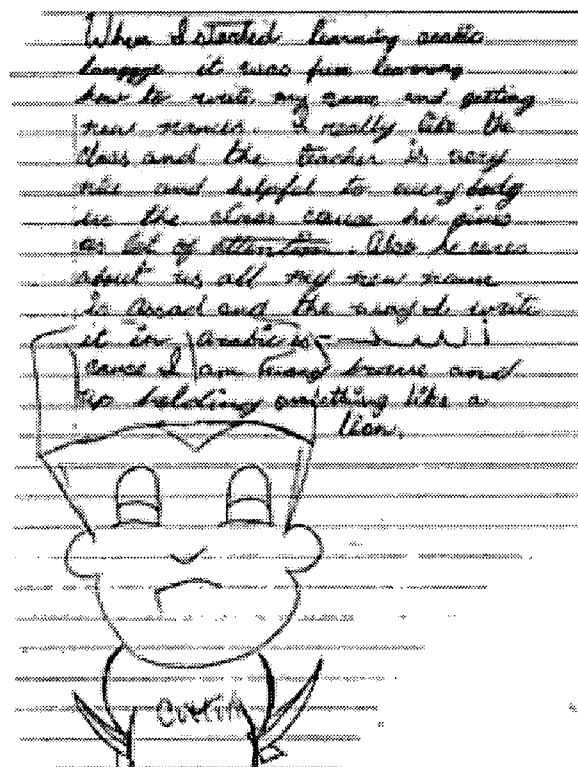 When I started learning arabic
langyge it was fun learning
how to write my name and getting
new names. I really like the
class and the teacher is very
nice and helpful to everybody
in the class cause he gives
as lot of attention. Also he cares
about us all my new name
is assad and the way I write
it in arabic is- أسد
cause I am brave and
holding something like a
lion.